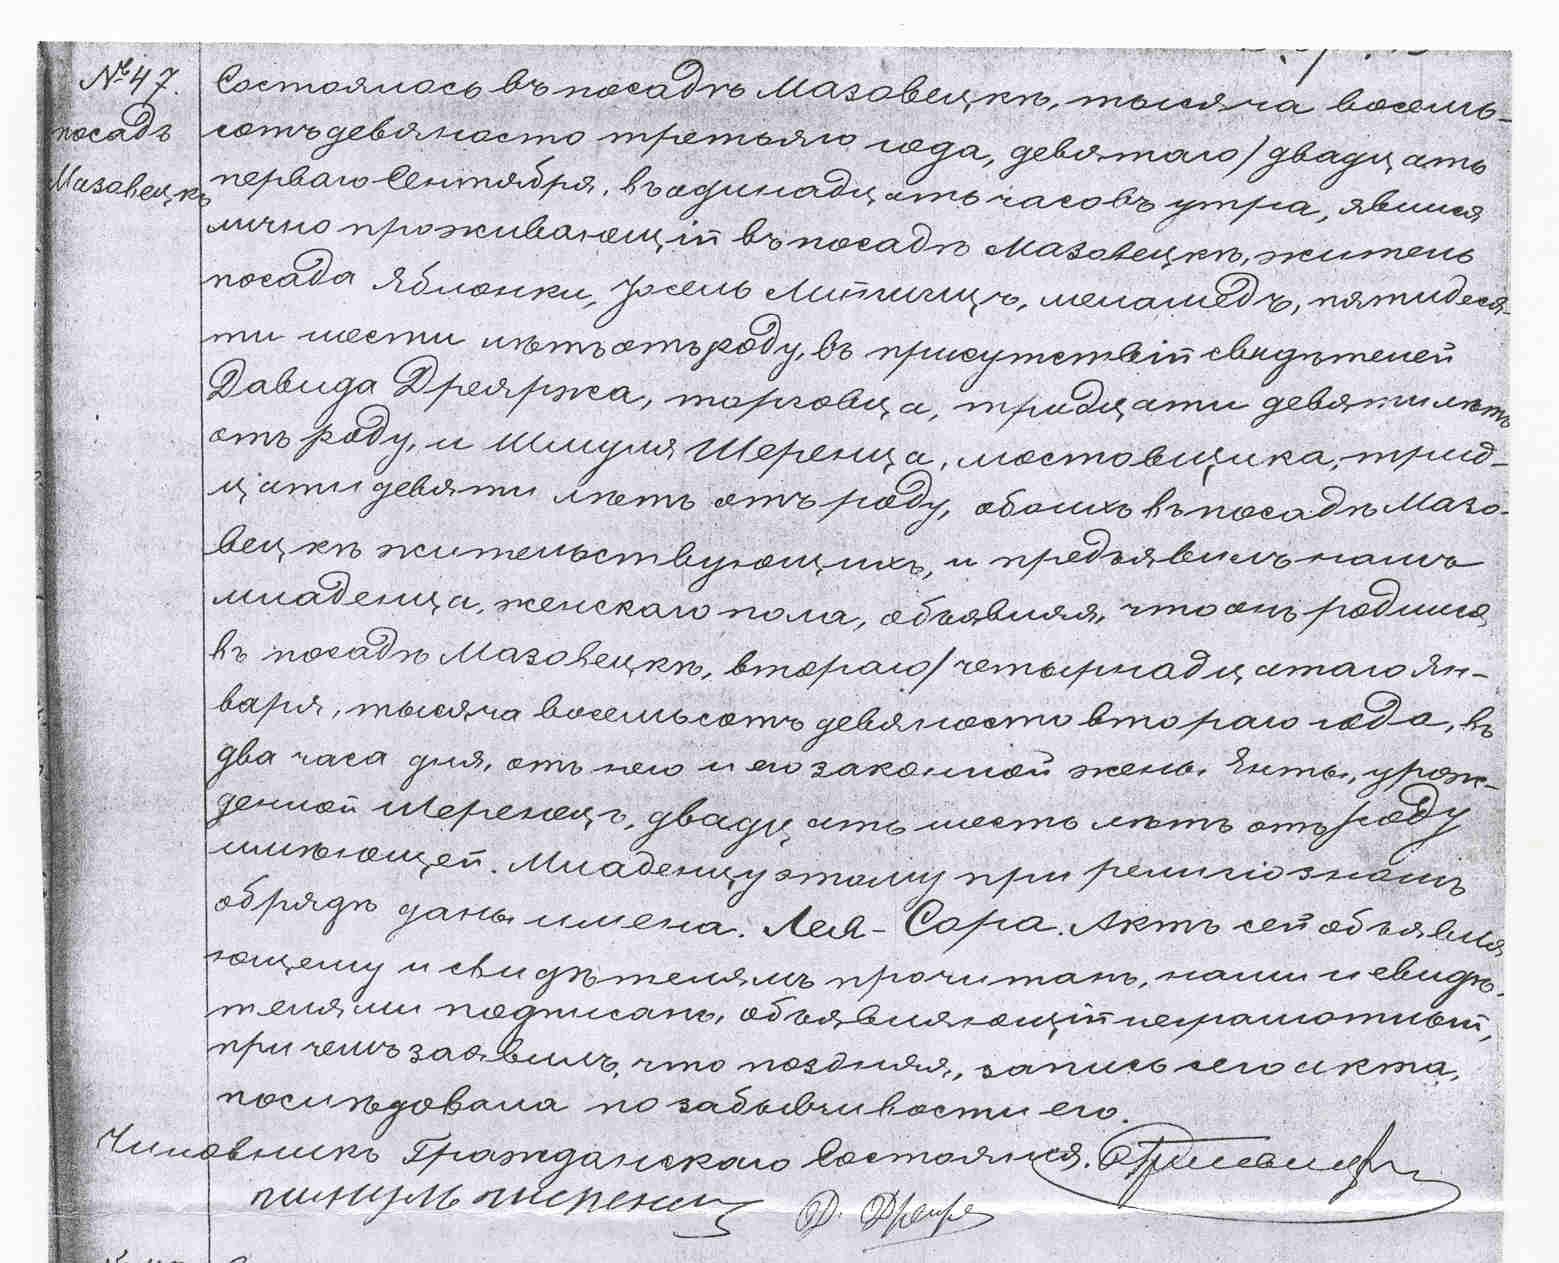 № 47.
посадъ
Мазовецкъ
Состоялось въ посадѣ Мазовецкѣ, тысяча восемь-
сотъ девяносто третьяго года, девятаго/двадцать
перваго Сентября, въ одинадцать часовъ утра, явился
лично проживающій въ посадѣ Мазовецкѣ, житель
посада Яблонки, меламедъ, пятидеся-
ти шести лѣтъ отъ роду, въ присутствій свидѣтелей
Давида Дреяржа, торговца, тридцати девяти лѣтъ
отъ роду, и Шмуля Шеренца, мостовщика, трид-
цати девяти лѣтъ отъ роду, обоихъ въ посадѣ Мазо-
вецкѣ жительствующихъ, и предъявилъ намъ
младенца, женскаго пола, объявляя, что онъ родился
въ посадѣ Мазовецкѣ, втораго/четырнадцатаго Ян-
варя, тысяча восемьсотъ девяносто втораго года, въ
два часа дня, отъ него и его законной жены Янты, урож-
денной Шеренецъ, двадцать шесть лѣтъ отъ роду
имѣющей. Младенцу этому при религіозномъ
обрядѣ даны имена. Лея-Сора. Актъ сей объявля
ющему и свидѣтелямъ прочитанъ, нами и свидѣ-
телями подписанъ, объявляющій неграмотный,
при чемъ заявилъ, что поздняя, запись сего акта,
послѣдовала по забывчивости его.
Чиновникъ Гражданскаго Состоянія.
Д. Дреярж